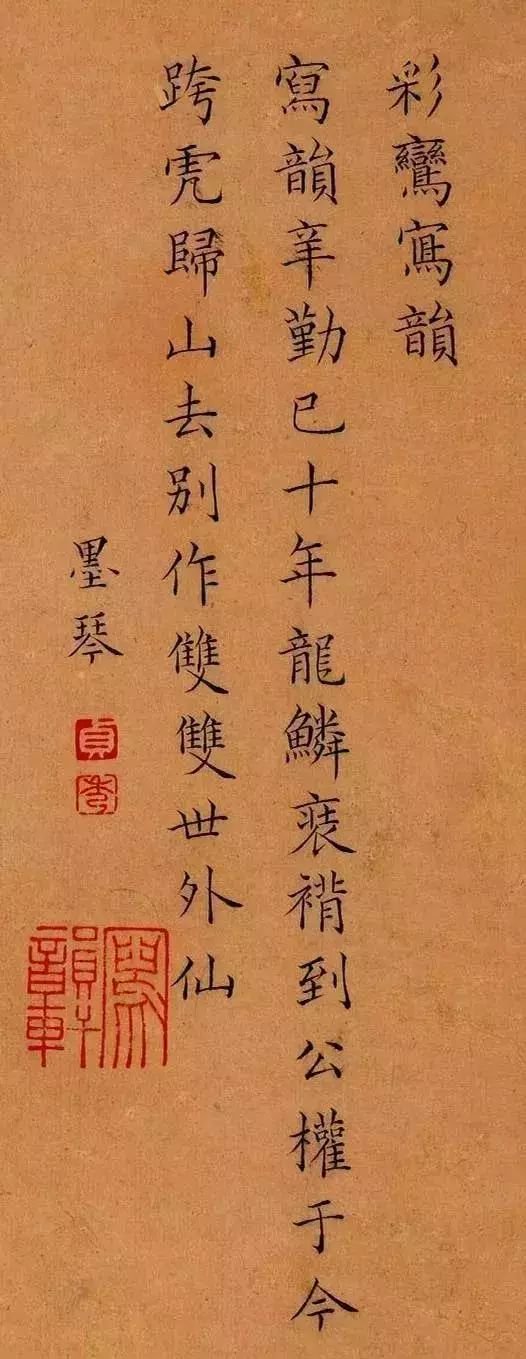 彩鸞寫韻
寫韻辛勤已十年龍鱗裝褙到公權于今
跨虎歸山去別作雙雙世外仙
墨琴
貞
秀
寫韻軒